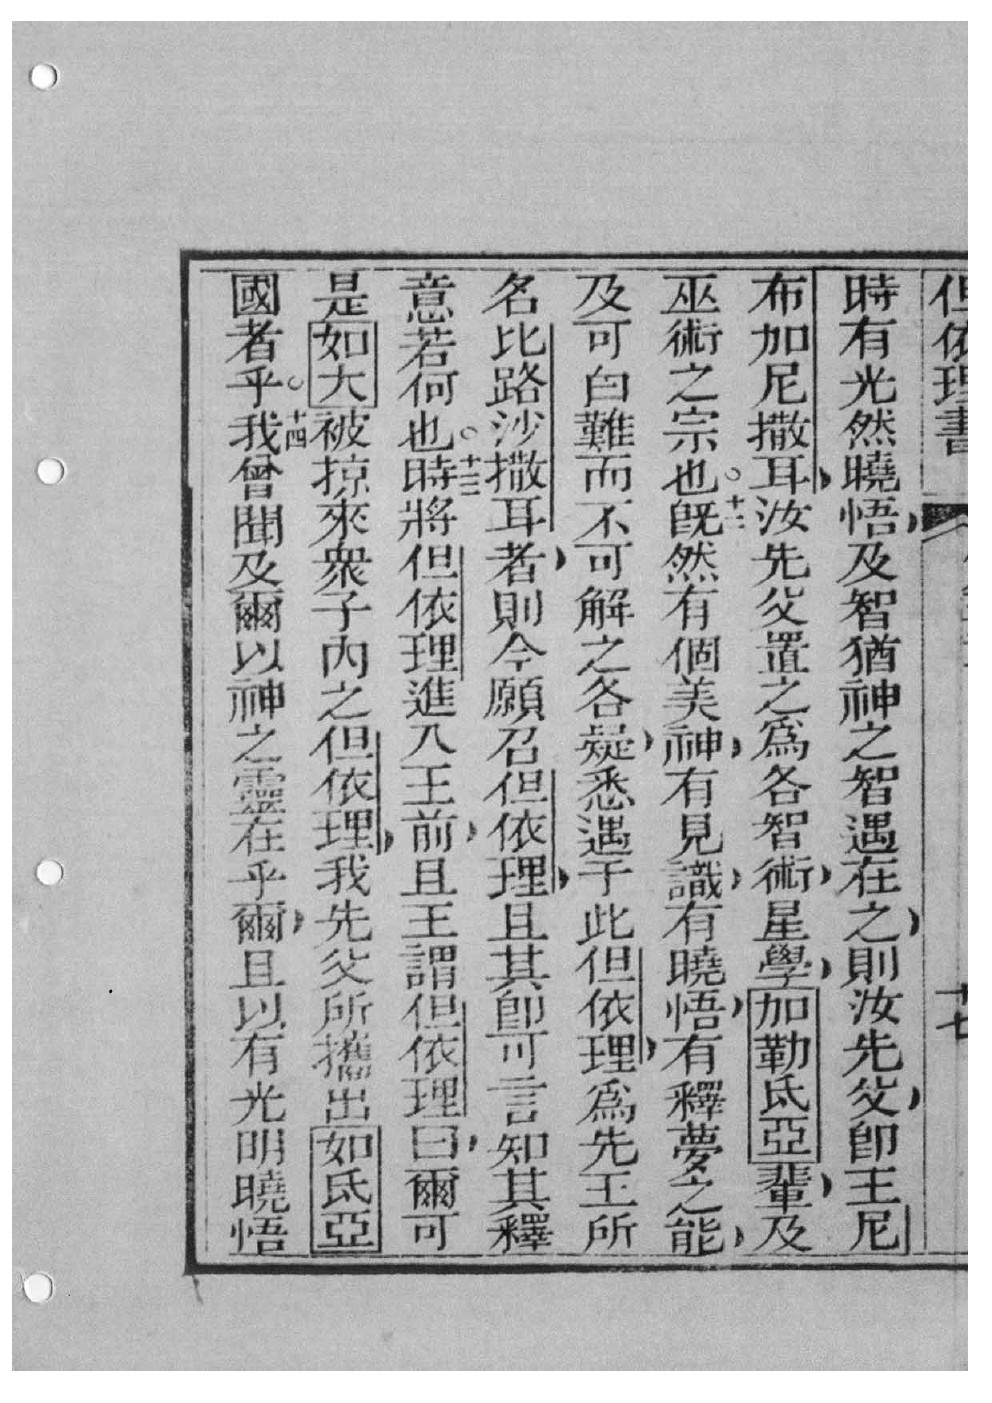 但依理書
十七
時有光然曉悟及智猶神之智遇在之則汝先父卽王尼
布加尼撒耳汝先父置之爲各智術星學加勒氐亞輩及
巫術之宗也。十二旣然有個美神有見識有曉悟有釋夢之能
及可白難而不可解之各疑悉遇于此但依理爲先王所
名比路沙撒耳者則今願召但依理且其卽可言知其釋
意若何也。十三時將但依理進入王前且王謂但依理曰爾可
是如大被掠來衆子內之但依理我先父所攜出如氐亞
國者乎。十四我曾聞及爾以神之靈在乎爾且以有光明曉悟